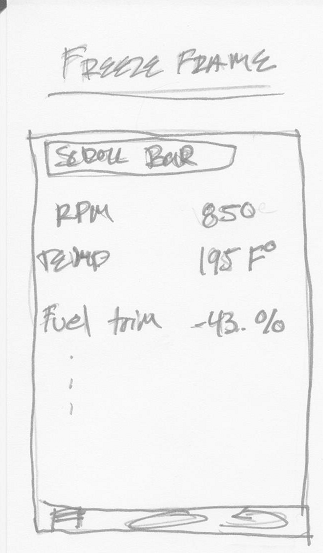 FREEZE FRAME
SCROLL BAR
RPM 850
TEMP 195 F°
Fuel trim -43. %